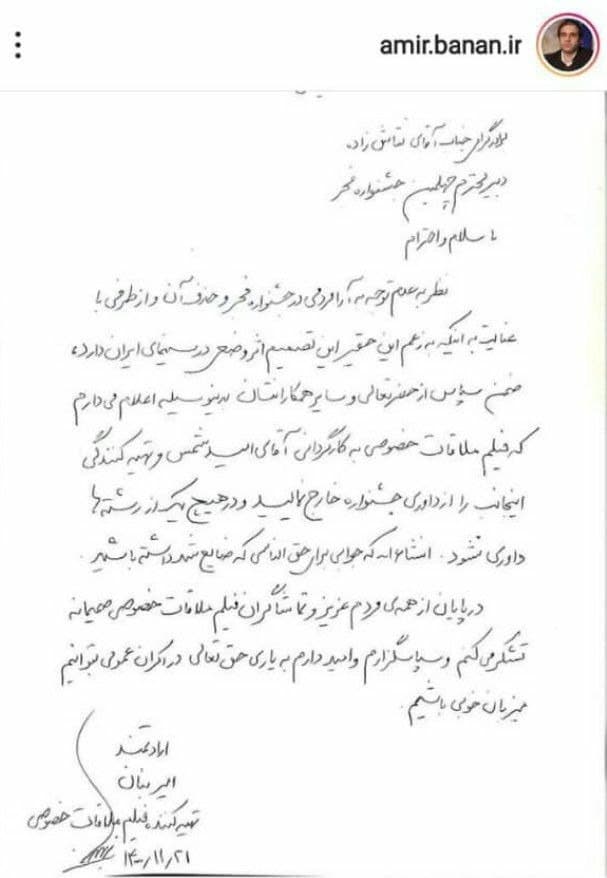 amir.banan.ir
برادر گرامی جناب آقای نقاش زاده
دبیر محترم چهلمین جشنواره فجر
با سلام و احترام
نظر به عدم توجه به آرا مردمی در جشنواره فجر و حذف آن و از طرفی با
عنایت به اینکه به زعم این حقیر این تصمیم اثر وضعی در سینمای ایران دارد،
ضمن سپاس از حضرتعالی و سایر همکارانتان بدینوسیله اعلام می دارم
که فیلم ملاقات خصوصی به کارگردانی آقای امید شمس و تهیه کنندگی
اینجانب را از داوری جشنواره خارج نمائید و در هیچ یک از رشته ها
داوری نشود. انشاءاله که جوابی برای حق الناسی که ضایع شد داشته باشید.
در پایان از همه ی مردم عزیز و تماشاگران فیلم ملاقات خصوصی صمیمانه
تشکر می کنم و سپاسگزارم و امید دارم به یاری حق تعالی در اکران عمومی بتوانیم
میزبان خوبی باشیم.
ارادتمند
امیر بنان
تهیه کننده فیلم ملاقات خصوصی
۱۴۰۰/۱۱/۲۱